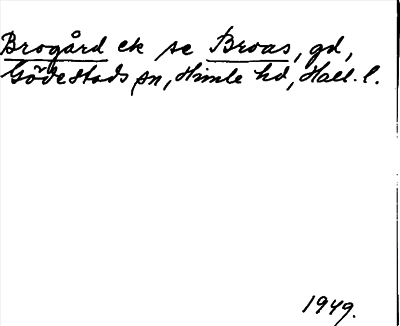 Brogård ek se Broas, gd,
Gödestads sn, Himle hd, Hall. l.
1949.